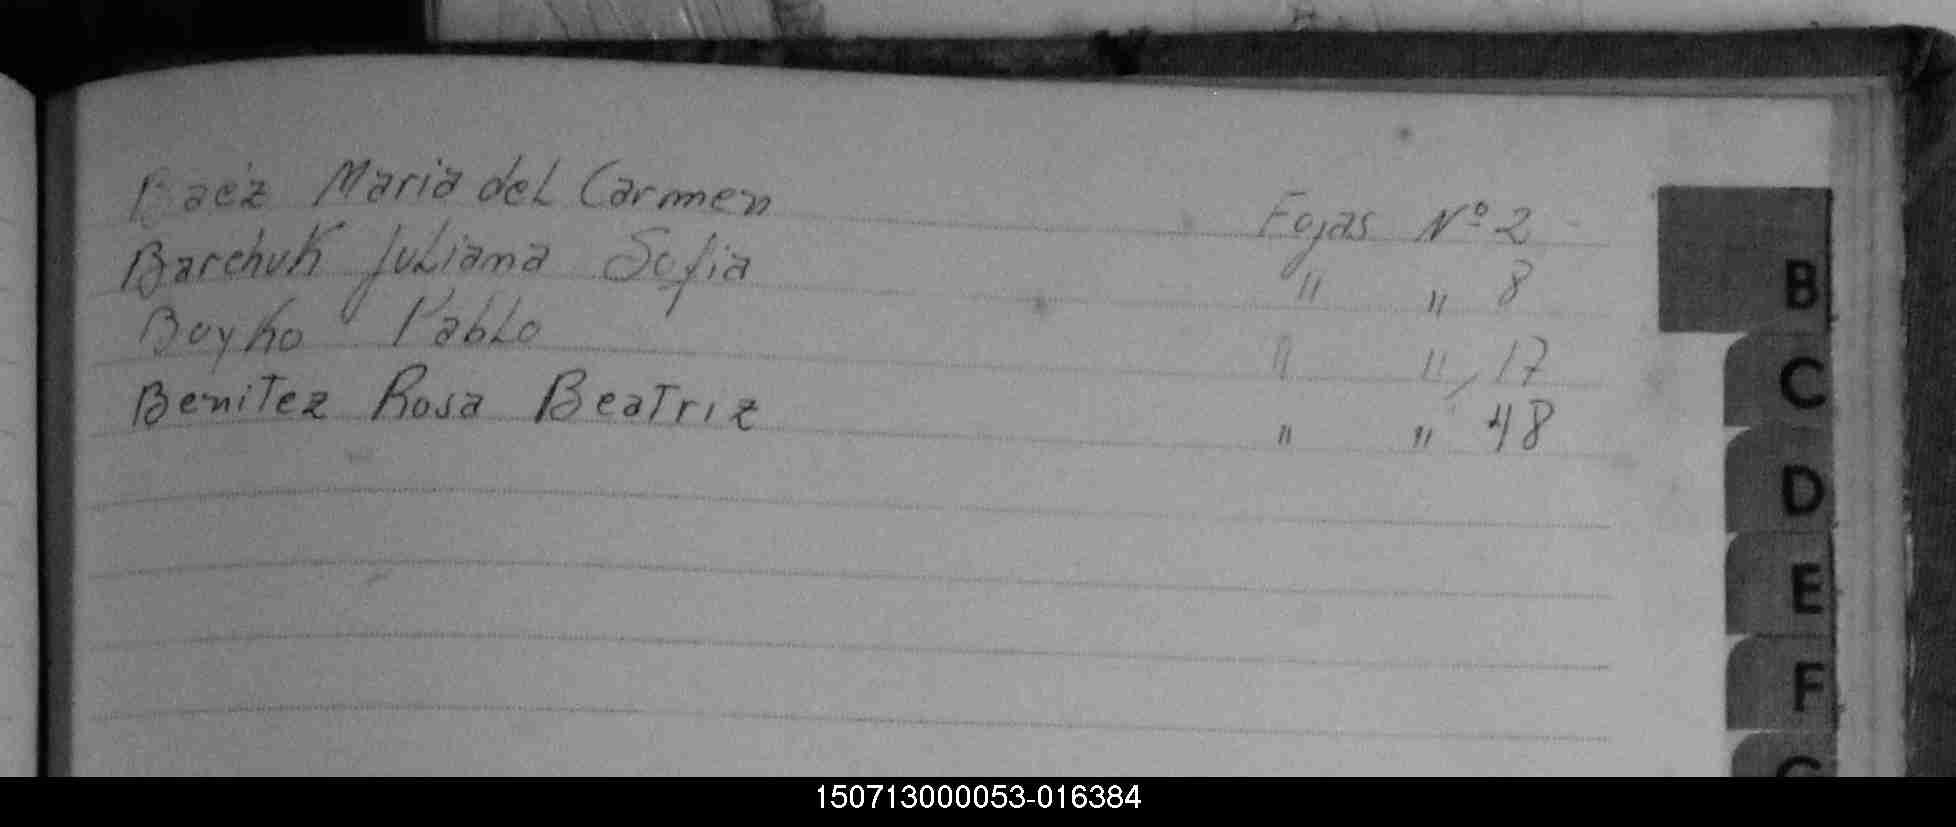 Baéz Maria del Carmen Fojas Nº 2
Barchuk Juliana Sofia " " 8
Boyko Pablo " " 17
Benitez Rosa Beatriz " " 48
B
C
D
E
F
G
150713000053-016384